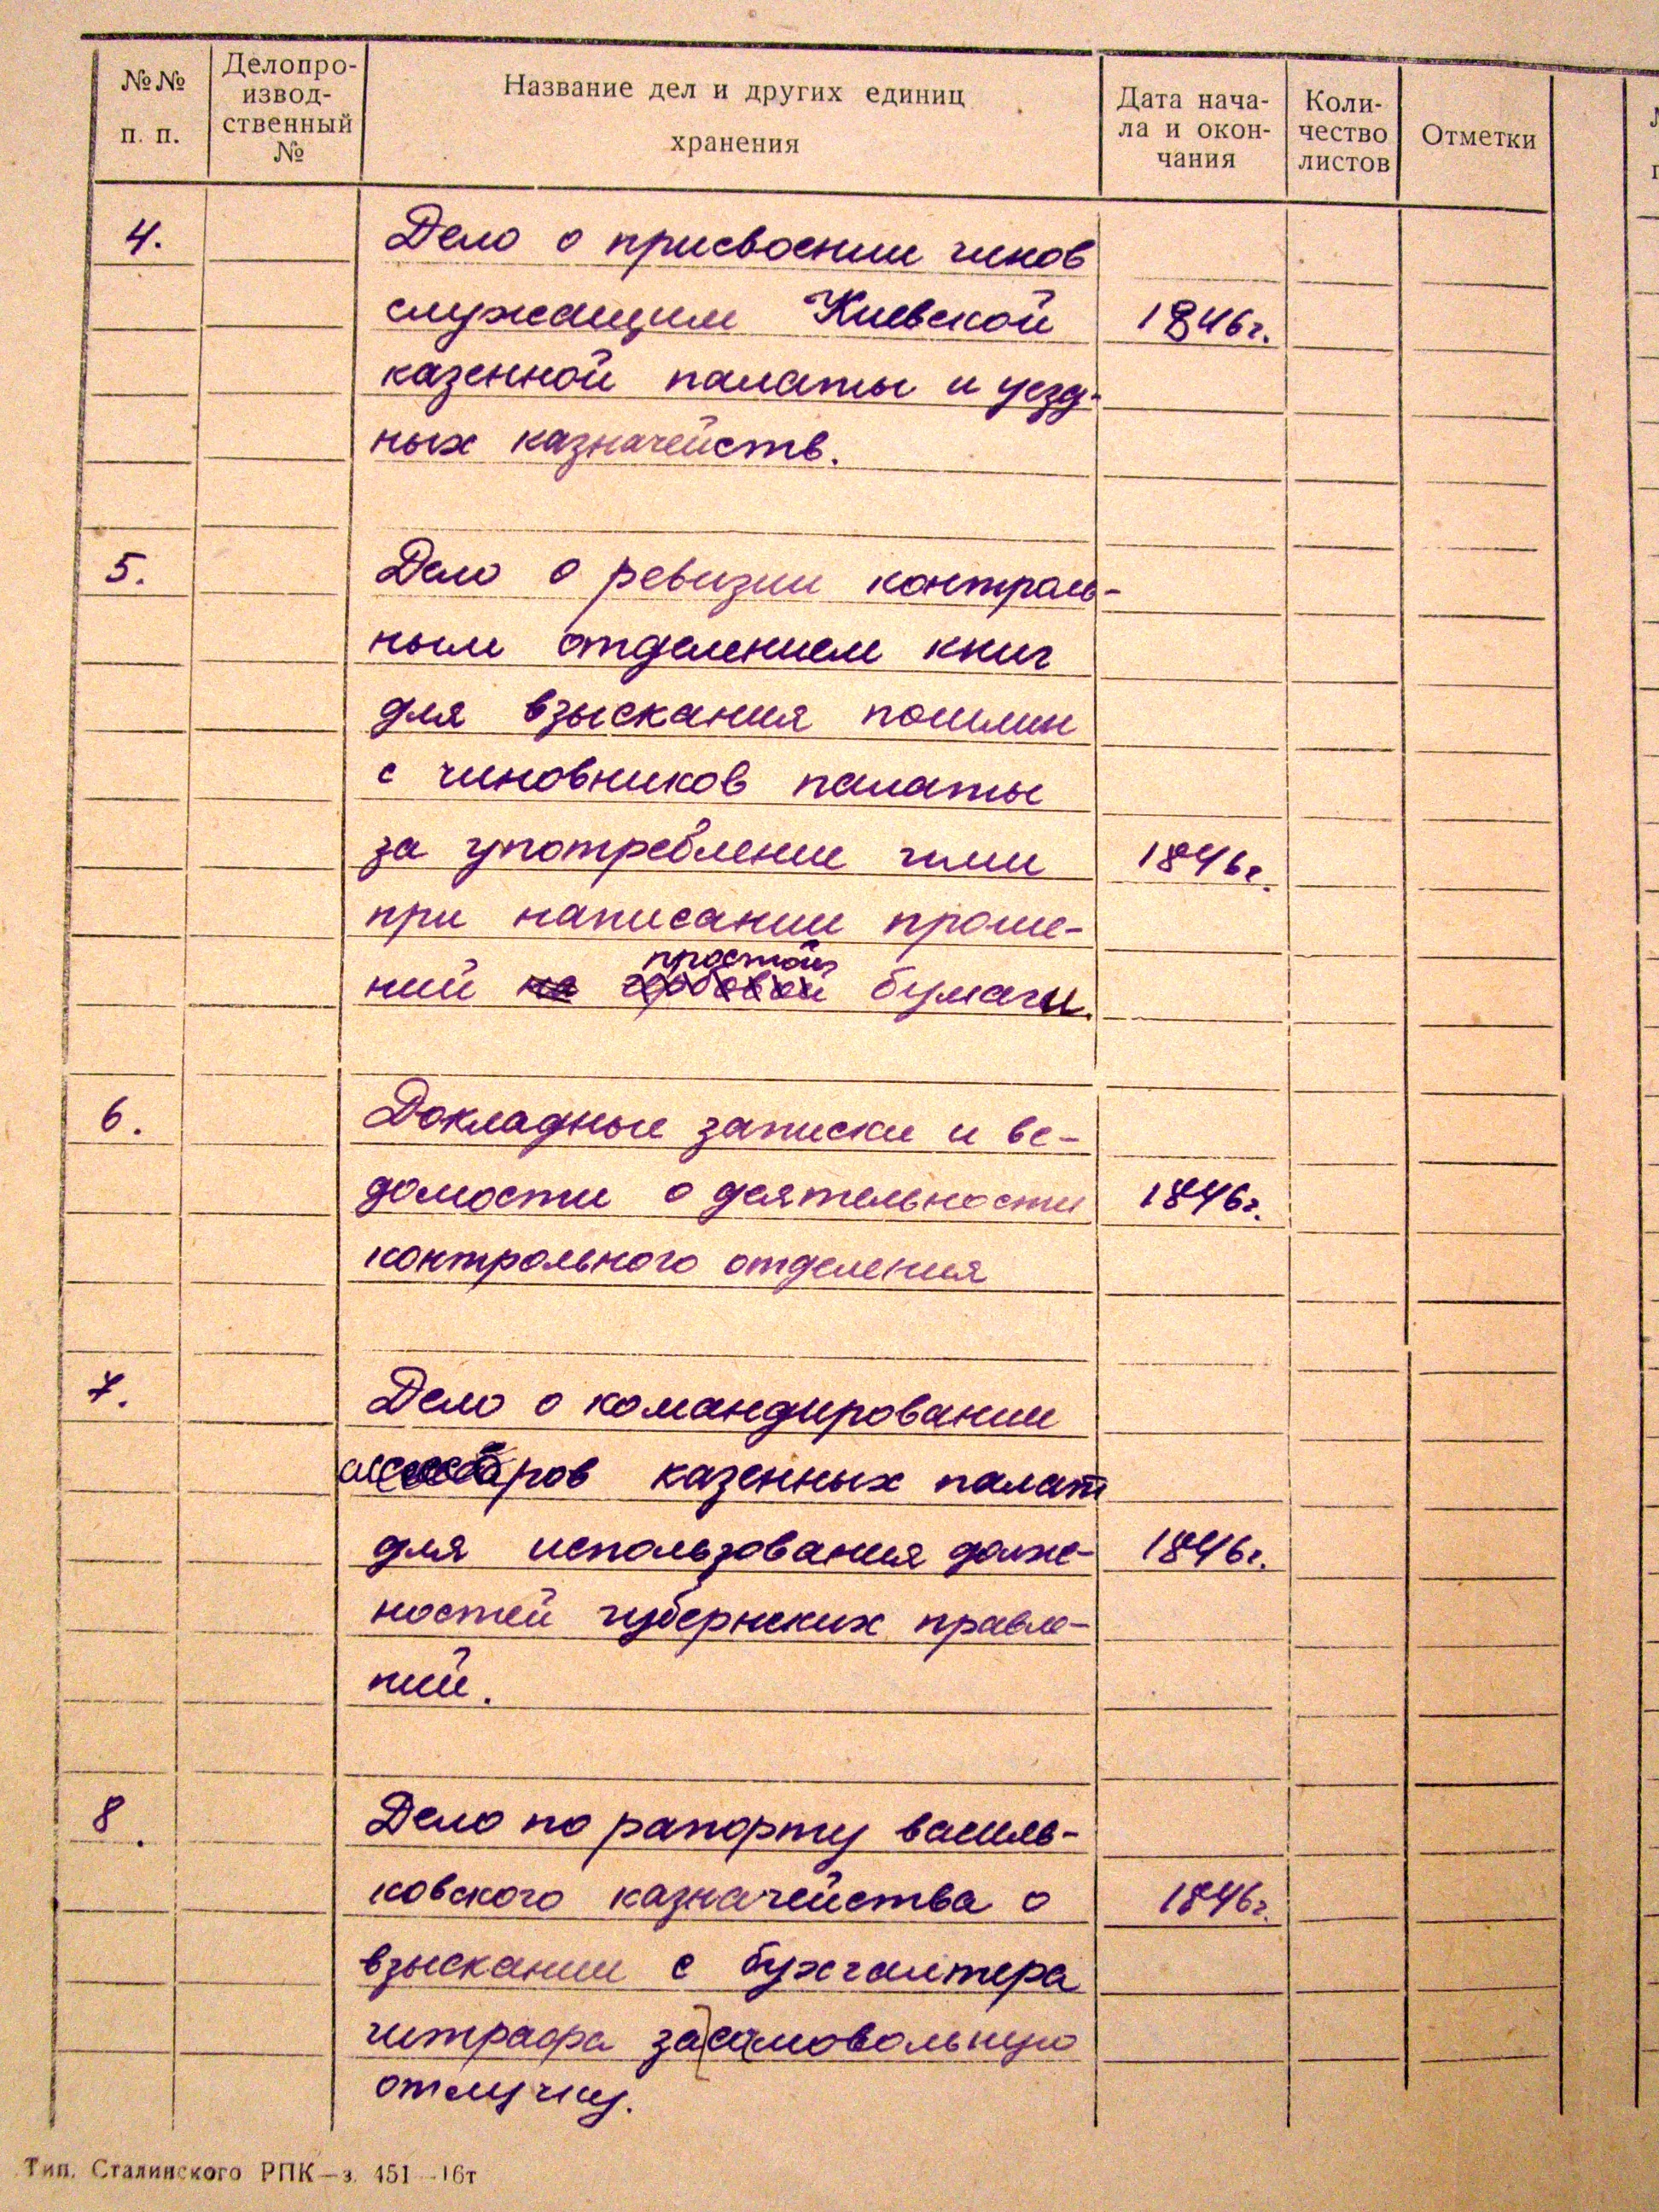 №№ п. п.
Делопро-
извод-
ственный
№
Название дел и других единиц
хранения
Дата нача-
ла и окон-
чания
Коли-
чество
листов
Отметки
4.
Дело о присвоении чинов
служащим Киевской 1846г.
казенной палаты и уезд-
ных казначейств.
5.
Дело о ревизии контроль-
ным отделением книг
для взыскания пошлин
с чиновников палаты
за употребление ими 1846г.
при написании проше-
простой
ний на гербовой бумаги.
6.
Докладные записки и ве-
домости о деятельности 1846г.
контрольного отделения
7.
Дело о командировании
ров казенных палат
для использования долж- 1846г.
ностей губернских правле-
ний.
8.
Дело по рапорту василь-
ковского казначейства о 1846г.
взыскании с бухгалтера
штрафа за самовольную
отлучку.
Тип. Сталинского РПК—з. 451—16т